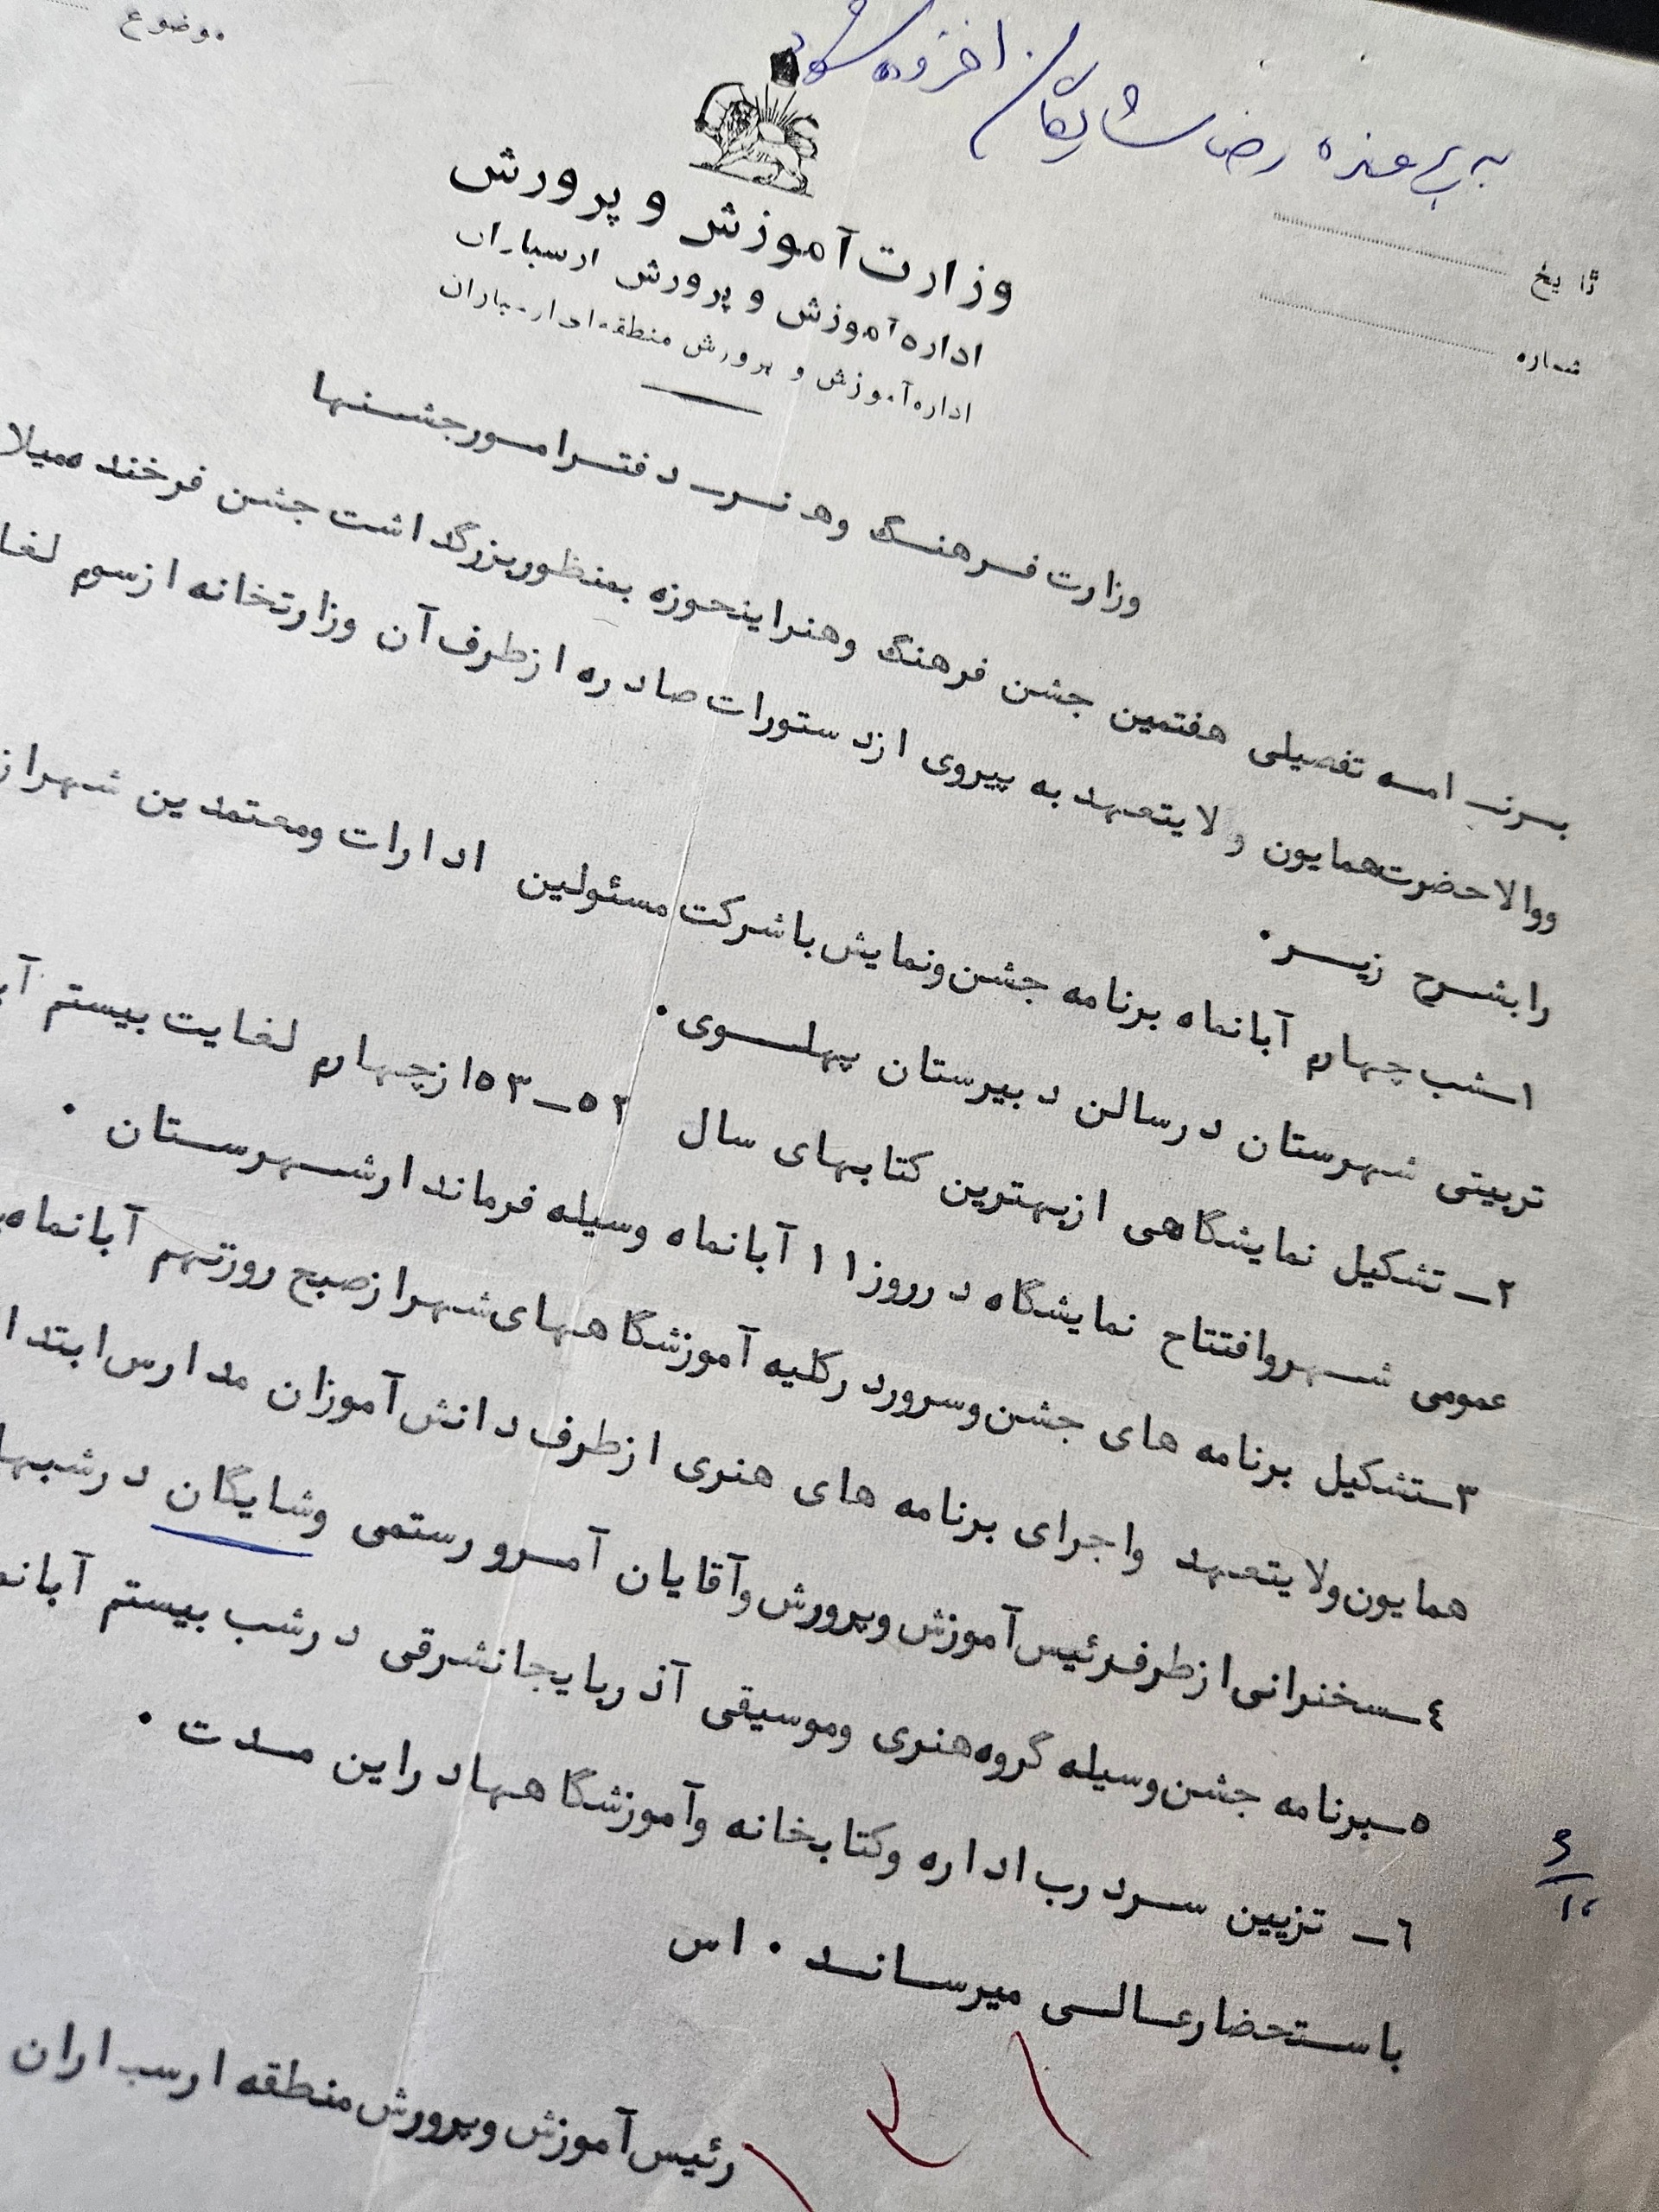 به پرونده رضا شایگان افزوده شود
موضوع
وزارت آموزش و پرورش
اداره آموزش و پرورش ارسباران
اداره آموزش و پرورش منطقه ارسباران
تاریخ
شماره
وزارت فرهنگ و هنر دفتر امور جشنها
برنامه تفصیلی هفتمین جشن فرهنگ و هنر اینحوزه بمنظور بزرگداشت جشن فرخنده میلا
و والاحضرت همایون ولایتعهد به پیروی از دستورات صادره از طرف آن وزارتخانه از سوم لغا
را بشرح زیر.
۱ـ شب چهارم آبانماه برنامه جشن و نمایش با شرکت مسئولین ادارات و معتمدین شهر از
تربیتی شهرستان در سالن دبیرستان پهلوی.
۲ـ تشکیل نمایشگاهی از بهترین کتابهای سال ۵۲ـ۵۳ از چهارم لغایت بیستم
عمومی شهر و افتتاح نمایشگاه در روز ۱۱ آبانماه وسیله فرماندار شهرستان.
۳ـ تشکیل برنامه های جشن و سرور در کلیه آموزشگاههای شهر از صبح روز نهم آبانماه
همایون ولایتعهد و اجرای برنامه های هنری از طرف دانش آموزان مدارس ابتدا
۴ـ سخنرانی از طرف رئیس آموزش و پرورش و آقایان آمرو رستمی و شایگان در شبها
۵ـ برنامه جشن وسیله گروه هنری و موسیقی آذربایجانشرقی در شب بیستم آبانم
۶ـ تزیین سردرب اداره و کتابخانه و آموزشگاهها در این مدت.
باستحضار عالی میرساند. اس
رئیس آموزش و پرورش منطقه ارسباران